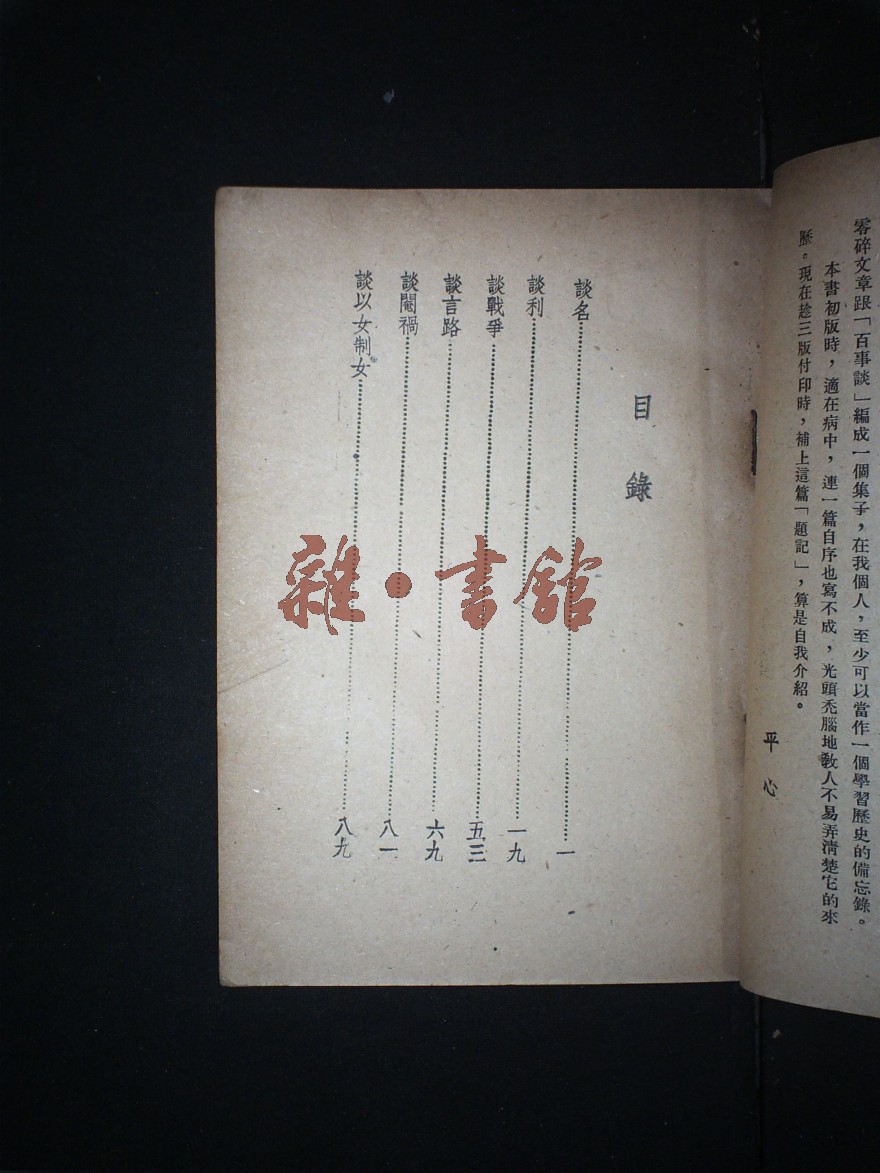 零碎文章跟「百事談」編成一個集子，在我個人，至少可以當作一個學習歷史的備忘錄。
本書初版時，適在病中，連一篇自序也寫不成，光頭禿腦地教人不易弄清楚它的來
歷。現在趁三版付印時，補上這篇「題記」，算是自我介紹。
平心
目錄
談名一
談利一九
談戰爭五三
談言路六九
談閹禍八一
談以女制女八九
雜·書館